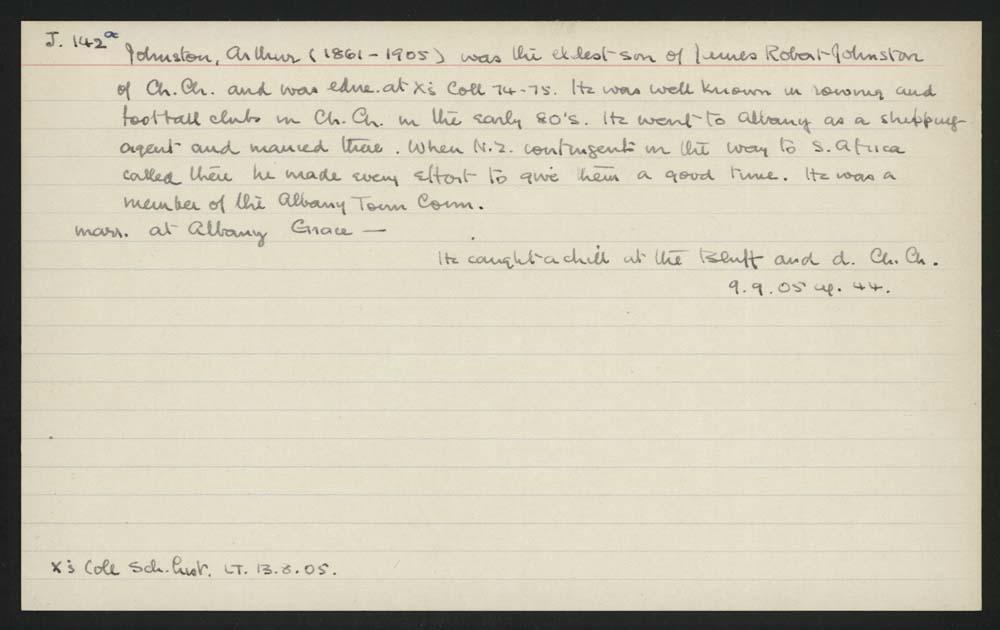 J. 142a
Johnston, Arthur (1861-1905) was the eldest son of James Robert Johnston
of Ch. Ch. and was educ. at X's Coll 74-75. He was well known in rowing and
football clubs in Ch. Ch. in the early 80's. He went to Albany as a shipping
agent and married there. When N.Z. contingents on the way to S. Africa
called there he made every effort to give them a good time. He was a
member of the Albany Town Coun.
marr. at Albany Grace —
He caught a chill at the Bluff and d. Ch. Ch.
9.9.05 ag. 44.
X's Coll Sch. List. LT. 13.8.05.